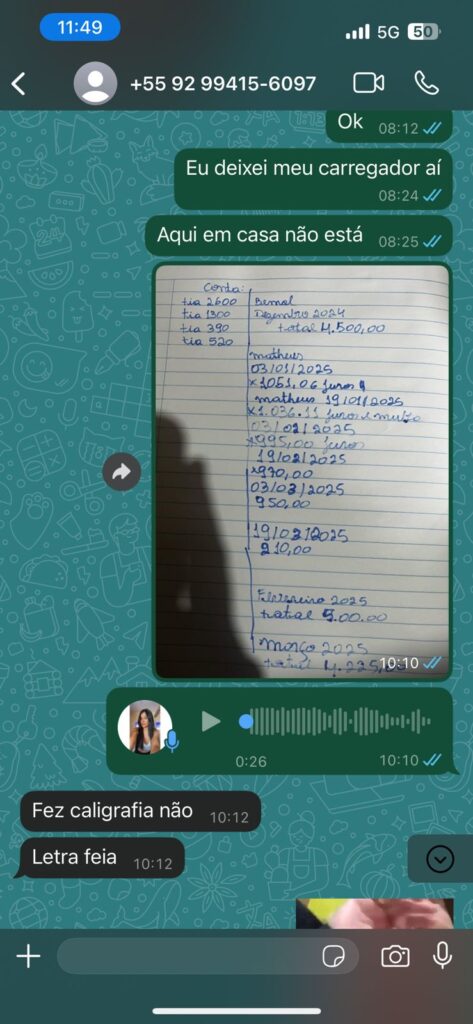 11:49
5G 50
+55 92 99415-6097
Ok 08:12
Eu deixei meu carregador aí
08:24
Aqui em casa não está 08:25
Conta:
tia 2600
tia 1300
tia 390
tia 520
Bemol
Dezembro 2024
total 4.500,00
matheus
03/01/2025
*1051,06 juros
matheus 19/01/2025
*1.036.11 juros e multa
03/02/2025
*995,00 juros
19/02/2025
*970,00
03/03/2025
950,00
19/03/2025
210,00
Fevereiro 2025
total 5.00.00
Março 2025
total 4.235,00
10:10
0:26 10:10
Fez caligrafia não 10:12
Letra feia 10:12